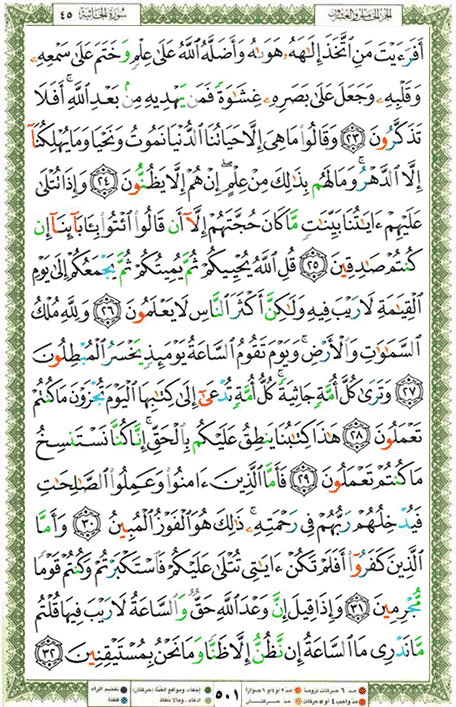 سورة الجاثية ٤٥ الجزء الخامس والعشرون
أَفَرَءَيْتَ مَنِ ٱتَّخَذَ إِلَٰهَهُۥ هَوَىٰهُ وَأَضَلَّهُ ٱللَّهُ عَلَىٰ عِلْمٍ وَخَتَمَ عَلَىٰ سَمْعِهِۦ
وَقَلْبِهِۦ وَجَعَلَ عَلَىٰ بَصَرِهِۦ غِشَٰوَةً فَمَن يَهْدِيهِ مِنۢ بَعْدِ ٱللَّهِ ۚ أَفَلَا
تَذَكَّرُونَ ٢٣ وَقَالُوا۟ مَا هِىَ إِلَّا حَيَاتُنَا ٱلدُّنْيَا نَمُوتُ وَنَحْيَا وَمَا يُهْلِكُنَآ
إِلَّا ٱلدَّهْرُ ۚ وَمَا لَهُم بِذَٰلِكَ مِنْ عِلْمٍ ۖ إِنْ هُمْ إِلَّا يَظُنُّونَ ٢٤ وَإِذَا تُتْلَىٰ
عَلَيْهِمْ ءَايَٰتُنَا بَيِّنَٰتٍ مَّا كَانَ حُجَّتَهُمْ إِلَّآ أَن قَالُوا۟ ٱئْتُوا۟ بِـَٔابَآئِنَآ إِن
كُنتُمْ صَٰدِقِينَ ٢٥ قُلِ ٱللَّهُ يُحْيِيكُمْ ثُمَّ يُمِيتُكُمْ ثُمَّ يَجْمَعُكُمْ إِلَىٰ يَوْمِ
ٱلْقِيَٰمَةِ لَا رَيْبَ فِيهِ وَلَٰكِنَّ أَكْثَرَ ٱلنَّاسِ لَا يَعْلَمُونَ ٢٦ وَلِلَّهِ مُلْكُ
ٱلسَّمَٰوَٰتِ وَٱلْأَرْضِ ۚ وَيَوْمَ تَقُومُ ٱلسَّاعَةُ يَوْمَئِذٍ يَخْسَرُ ٱلْمُبْطِلُونَ
٢٧ وَتَرَىٰ كُلَّ أُمَّةٍ جَاثِيَةً ۚ كُلُّ أُمَّةٍ تُدْعَىٰٓ إِلَىٰ كِتَٰبِهَا ٱلْيَوْمَ تُجْزَوْنَ مَا كُنتُمْ
تَعْمَلُونَ ٢٨ هَٰذَا كِتَٰبُنَا يَنطِقُ عَلَيْكُم بِٱلْحَقِّ ۚ إِنَّا كُنَّا نَسْتَنسِخُ
مَا كُنتُمْ تَعْمَلُونَ ٢٩ فَأَمَّا ٱلَّذِينَ ءَامَنُوا۟ وَعَمِلُوا۟ ٱلصَّٰلِحَٰتِ
فَيُدْخِلُهُمْ رَبُّهُمْ فِى رَحْمَتِهِۦ ۚ ذَٰلِكَ هُوَ ٱلْفَوْزُ ٱلْمُبِينُ ٣٠ وَأَمَّا
ٱلَّذِينَ كَفَرُوٓا۟ أَفَلَمْ تَكُنْ ءَايَٰتِى تُتْلَىٰ عَلَيْكُمْ فَٱسْتَكْبَرْتُمْ وَكُنتُمْ قَوْمًا
مُّجْرِمِينَ ٣١ وَإِذَا قِيلَ إِنَّ وَعْدَ ٱللَّهِ حَقٌّ وَٱلسَّاعَةُ لَا رَيْبَ فِيهَا قُلْتُم
مَّا نَدْرِى مَا ٱلسَّاعَةُ إِن نَّظُنُّ إِلَّا ظَنًّا وَمَا نَحْنُ بِمُسْتَيْقِنِينَ ٣٢
مد ٦ حركات لزوماً مد ٢ او ٤ او ٦ جوازاً إخفاء، ومواقع الغنة (حركتان) تفخيم الراء
مد واجب ٤ او ٥ حركات مد حركتان ٥٠١ إدغام، ومالا يلفظ قلقلة